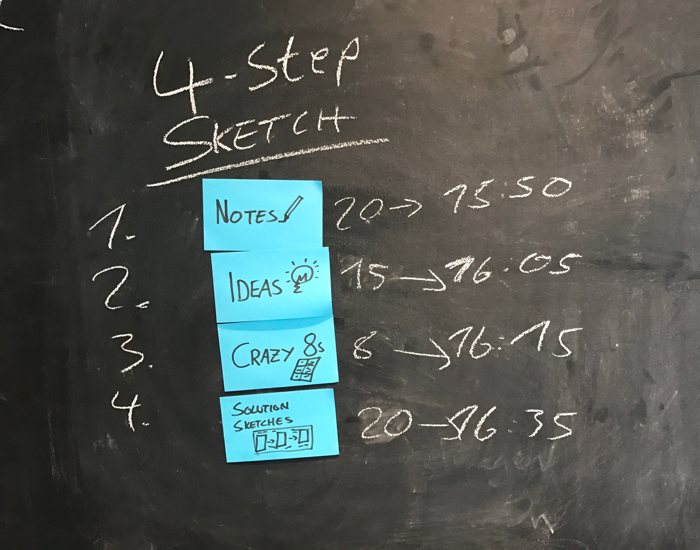 4-Step
SKETCH
1. NOTES 20 → 15:50
2. IDEAS 15 → 16:05
3. CRAZY 8s 8 → 16:15
4. SOLUTION
SKETCHES
20 → 16:35